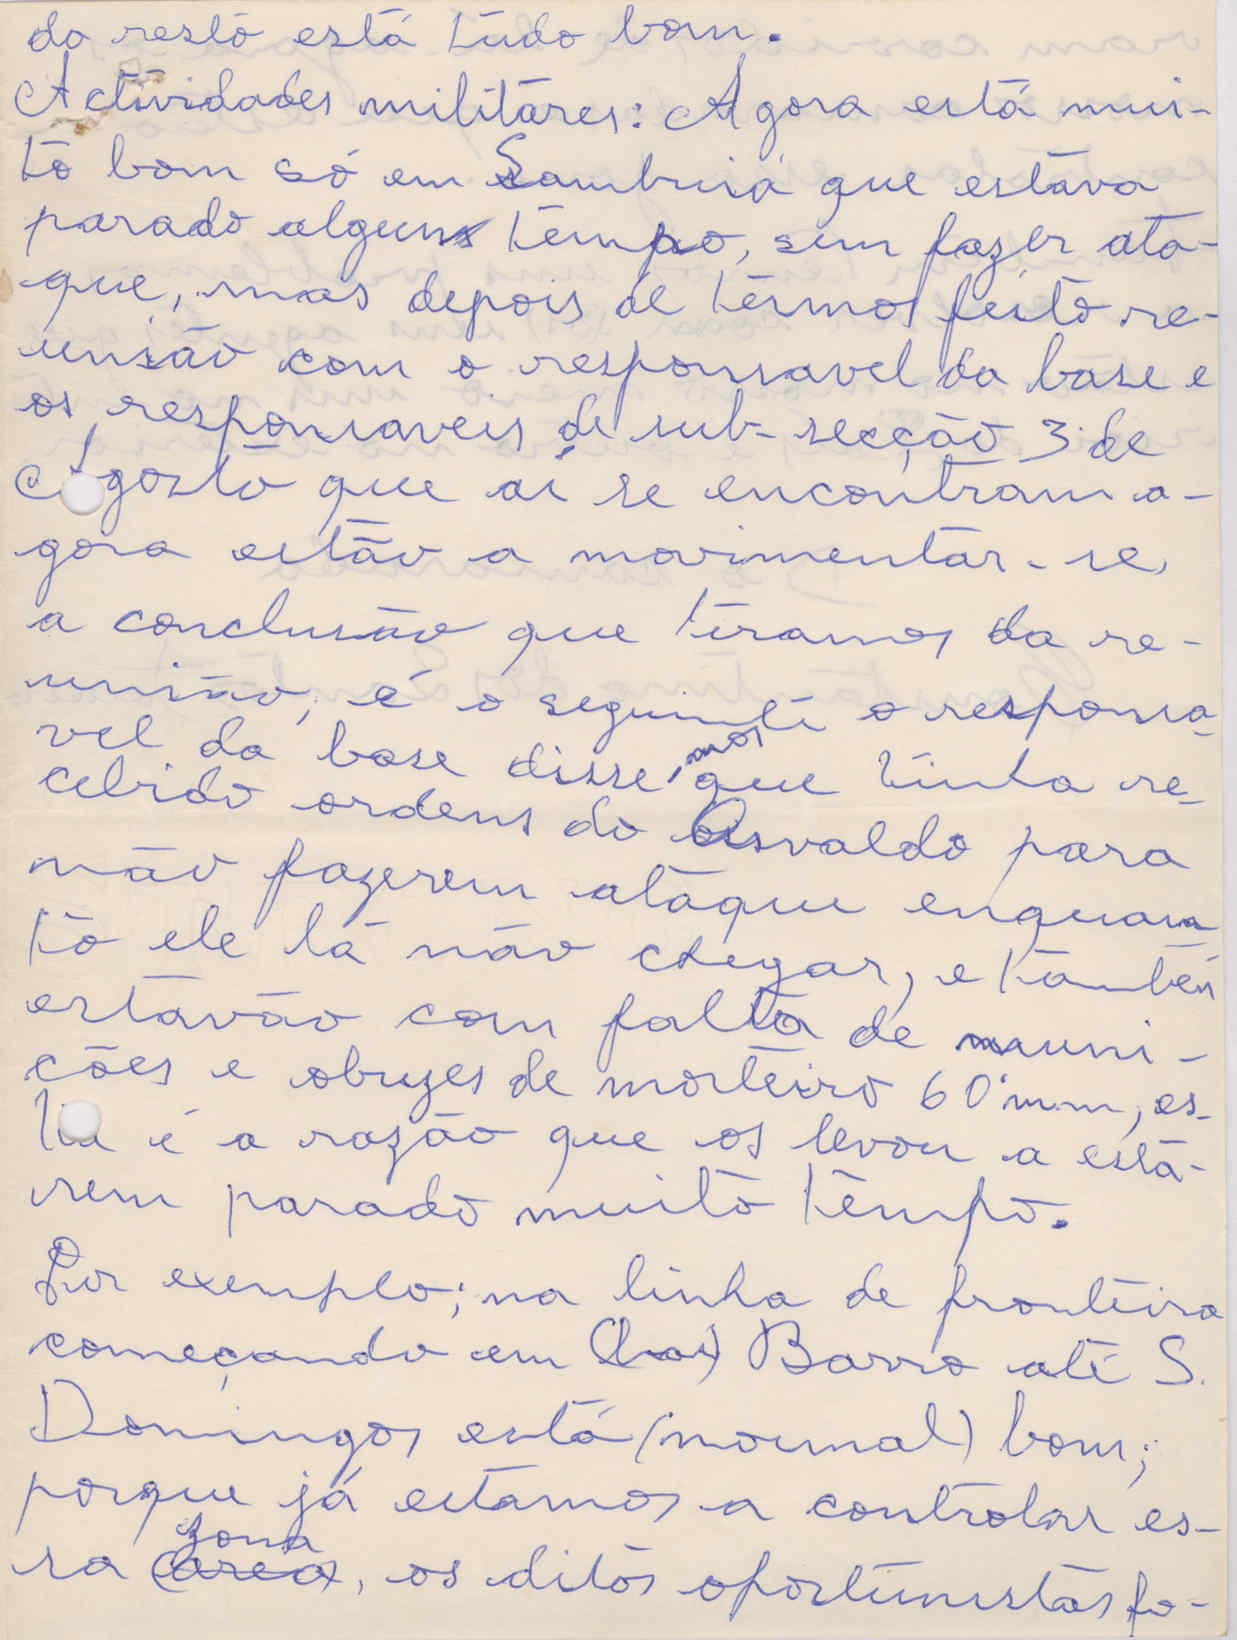 do resto está tudo bom.
Actividades militares: Agora está mui-
to bom só em Sambuiá que estava
parado algum tempo, sem fazer ata-
que, mas depois de termos feito re-
unsão com o responsavel da base e
os responsaveis de sub-secção 3 de
Agosto que aí se encontram a-
gora estão a movimentar-se,
a conclusão que tiramos da re-
união, é o seguinte o responsa-
vel da base disse-nos que tinha re-
cebido ordens do Osvaldo para
não fazerem ataque enquan-
to ele lá não chegar, e também
estavão com falta de muni-
ções e obuzes de morteiro 60 mm, es-
ta é a razão que os levou a esta-
rem parado muito tempo.
Por exemplo; na linha de fronteira
começando em Barro até S.
Domingos está (normal) bom;
porque já estamos a controlar es-
sa (area) zona, os ditos oportunistas fo-